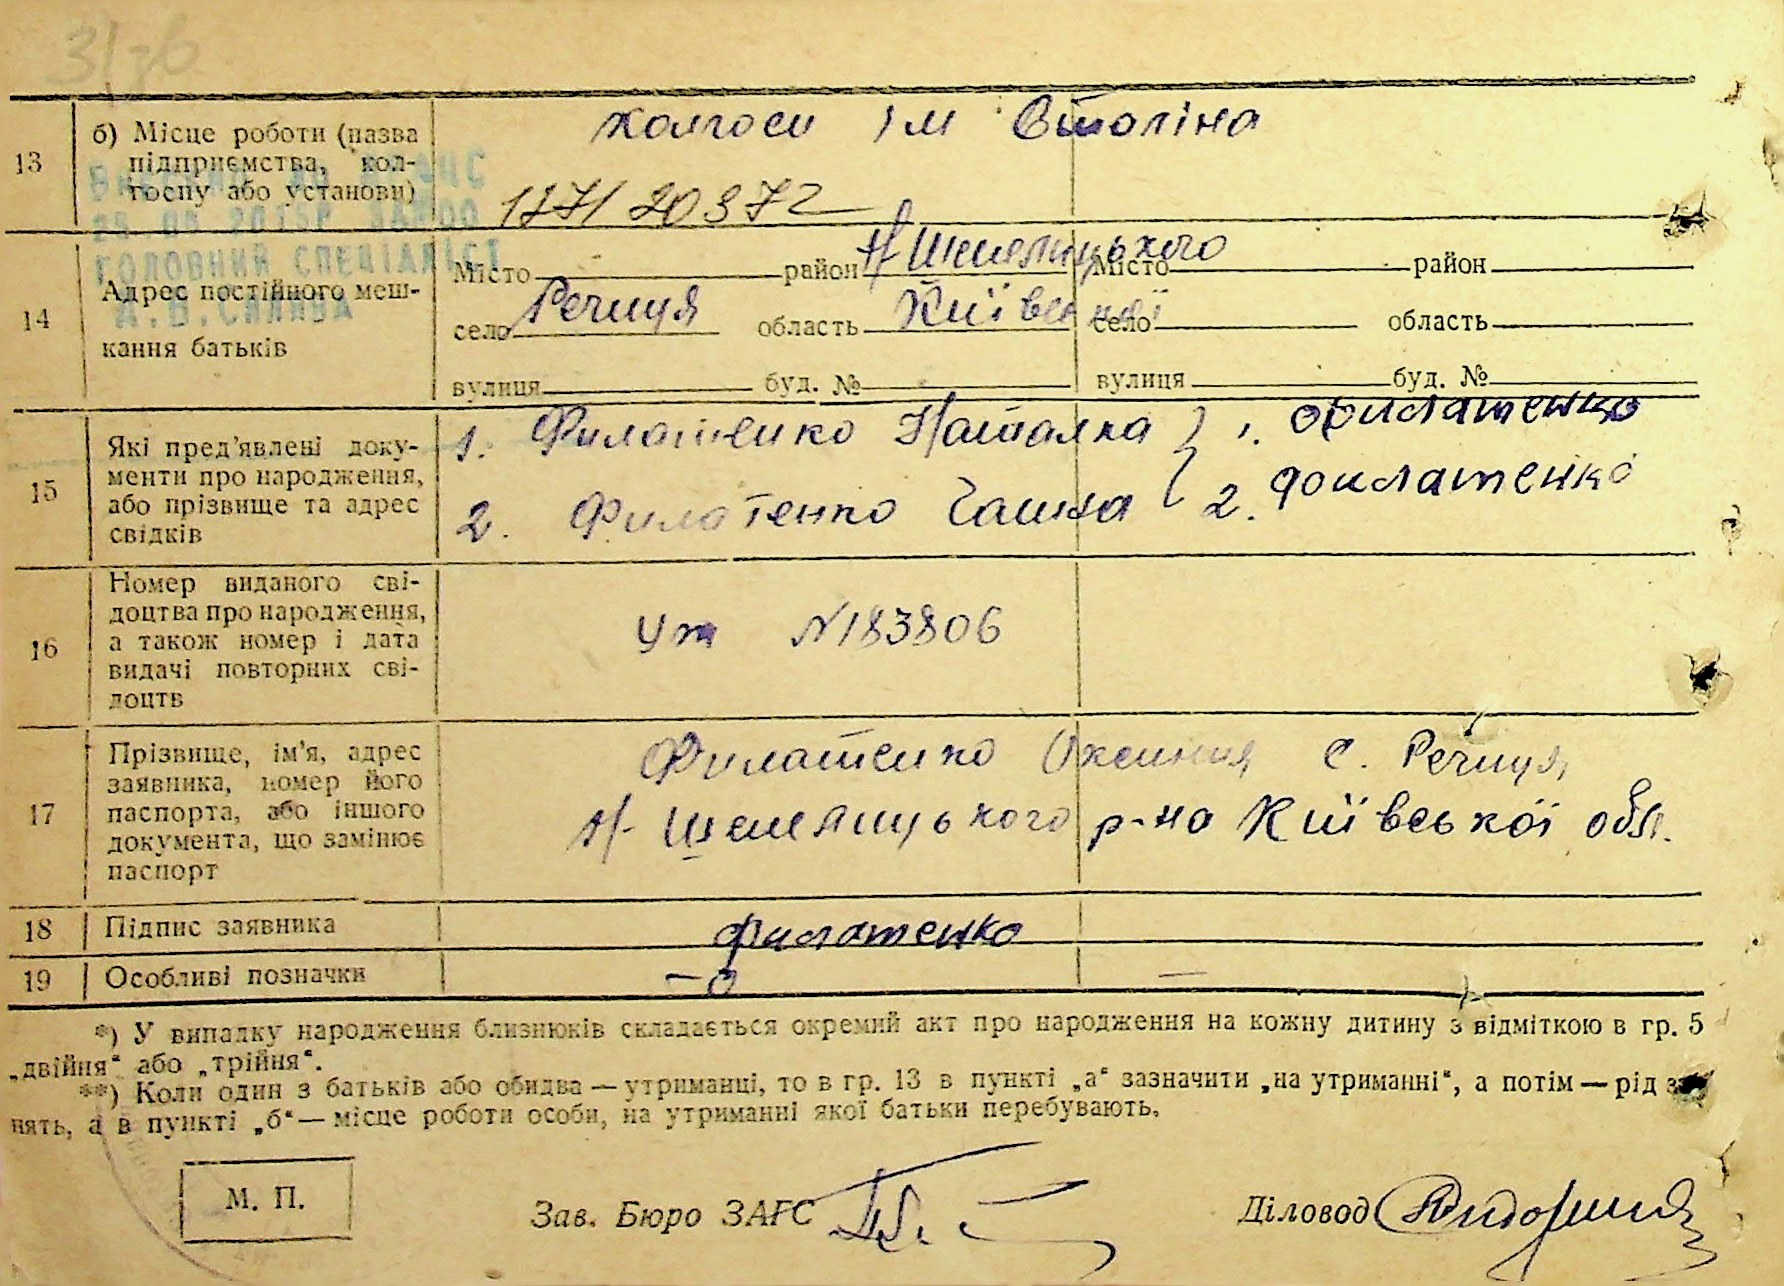 31-б
13
б) Місце роботи (назва
підприємства, кол-
госпу або установи)
колгосп ім Сталіна
14
Адрес постійного меш-
кання батьків
Місто район Н Шепелицького Місто район
село Речиця область Київської село область
вулиця буд. № вулиця буд. №
15
Які пред'явлені доку-
менти про народження,
або прізвище та адрес
свідків
1. Филатенко Наталка 1. Филатенко
2. Филатенко 2. Филатенко
16
Номер виданого сві-
доцтва про народження,
а також номер і дата
видачі повторних сві-
доцтв
N183806
17
Прізвище, ім'я, адрес
заявника, номер його
паспорта, або іншого
документа, що замінює
паспорт
Филатенко с. Речиця,
Н-Шепелицького р-на Київської обл.
18
Підпис заявника
Филатенко
19
Особливі позначки
— —
*) У випадку народження близнюків складається окремий акт про народження на кожну дитину з відміткою в гр. 5
„двійня“ або „трійня“.
**) Коли один з батьків або обидва — утриманці, то в гр. 13 в пункті „а“ зазначити „на утриманні“, а потім — рід за-
нять, а в пункті „б“ — місце роботи особи, на утриманні якої батьки перебувають.
М. П.
Зав. Бюро ЗАГС
Діловод